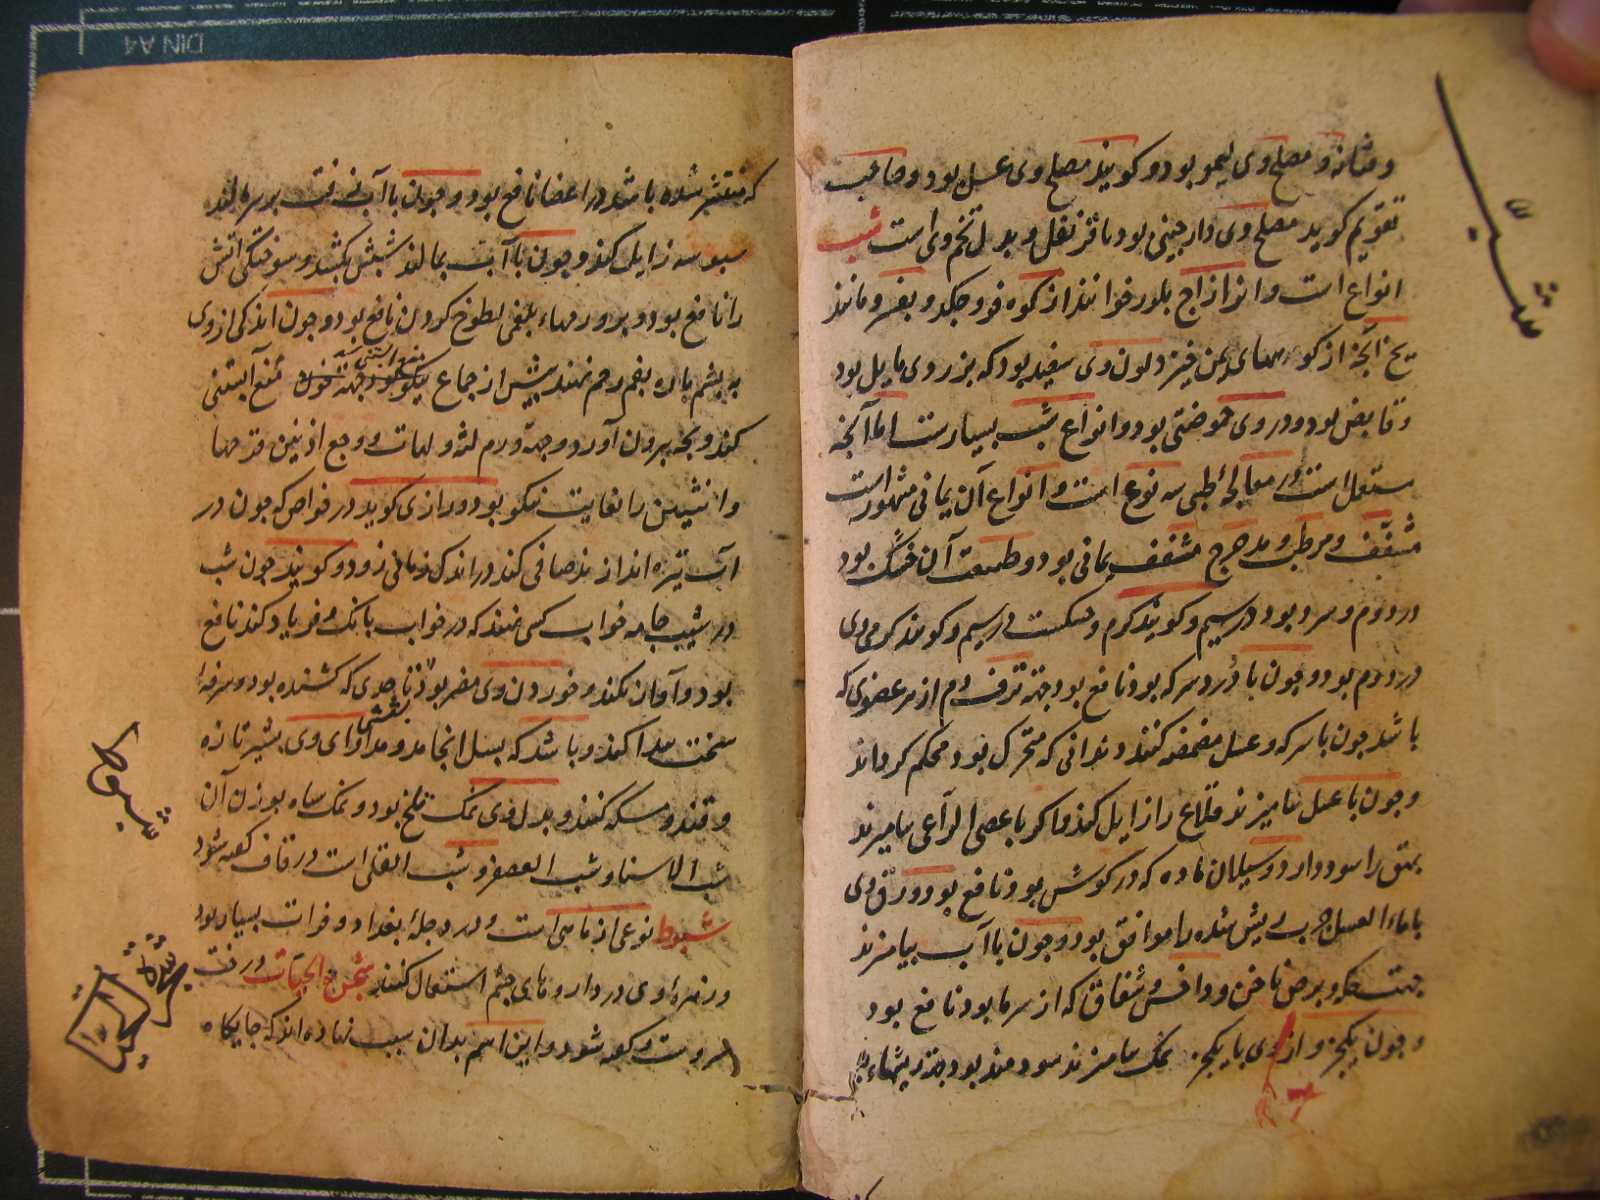 و مثانه و مصلح وی لیمو بود و کویند مصلح وی عسل بود و صاحب
تقویم کوید مصلح وی دارچینی بود با قرنفل و بدل تخم وی است شب
انواع است و آنرا زاج بلور خوانند از کوه فرو چکد و بفسرد مانند
یخ آنچه از کوههای یمن خیزد لون وی سفید بود که بزردی مایل بود
و قابض بود و در وی حموضتی بود و انواع شب بسیارست اما آنچه
مستعمل است در معالجۀ طبی سه نوع است و انواع آن یمانی مشهورست
مشقف و مرطب و مدحرج مشقف یمانی بود و طبیعت آن خشک بود
در دوم و سرد بود در سیم و کویند کرم و خشکست در سیم و کویند کرمی وی
در دوم بود و چون با درد سرکه بود نافع بود جهته نزف دم از هر عضوی که
باشد چون با سرکه و عسل مضمضه کنند دندانی که متحرک بود محکم کرداند
و چون با عسل بیامیزند قلاع را زایل کند و اکر با عصی الراعی بیامیزند
بهق را سود دارد و سیلان ماده که در کوش بود نافع بود و ورق وی
با ماء العسل جرب ریش شده را موافق بود و چون با آب بیامیزند
جهت حکه و برص ناخن و داخس و شقاق که از سرما بود نافع بود
و چون یکجز و از وی با یکجز نمک بیامیزند سودمند بود جهته ریشهاء بد
شبّ
که منتشر شده باشد در اعضا نافع بود و چون با آب زفت بر سر مالند
سبوسه زایل کند و چون با آب بمالند شپش بکشد و سوختکی آتش
را نافع بود و بر ورمهاء بلغمی لطوخ کردن نافع بود و چون اندکی از وی
به پشم پاره بفم رحم نهند پیش از جماع نیکو بود جهته منع آبستنی
کند و بچه بیرون آورد و جهة ورم لثه و لهات و وجع اذنین و قرحها
و انثیین را بغایت نیکو بود و رازی کوید در خواص که چون در
آب تیره اندازند صافی کند در اندک زمانی زود و کویند چون شب
در شیب جامه خواب کسی نهند که در خواب بانک و فریاد کند نافع
بود و امان بکند و خوردن وی مضر بود تا حدی که کشنده بود و سرفۀ
سخت پیدا کند و باشد که بسل انجامد و مداوای وی بشیر تازه
و قند و مسکه کنند و بدل وی نمک تلخ بود و نمک سیاه بوزن آن
شب الاساکفه و شب العصفر و شب القلی است در قاف کفته شود
شبوط نوعی از ماهی است و در دجلۀ بغداد و فرات بسیار بود
و زهرۀ وی در داروهای چشم استعمال کنند شجرة الحیات درخت
سروست و کفته شود و این اسم بدان سبب نهاده اند که جایکاه
شبوط
شجرة الحیات